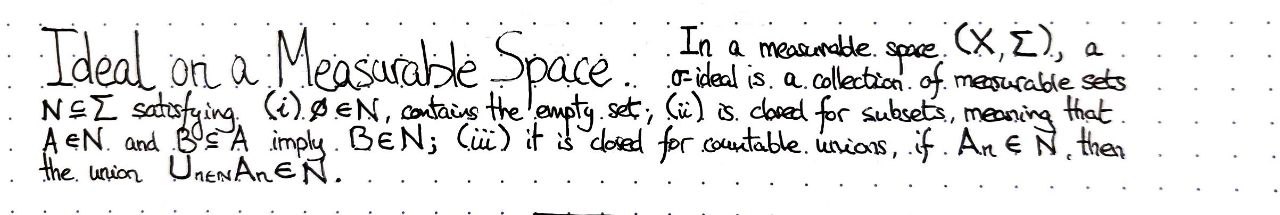 Ideal on a Measurable Space. In a measurable space (X, Σ), a
σ-ideal is a collection of measurable sets
N ⊆ Σ satisfying (i) ∅ ∈ N, contains the empty set; (ii) is closed for subsets, meaning that
A ∈ N and B ⊆ A imply B ∈ N; (iii) it is closed for countable unions, if Aₙ ∈ N, then
the union ⋃ₙ∈ℕ Aₙ ∈ N.